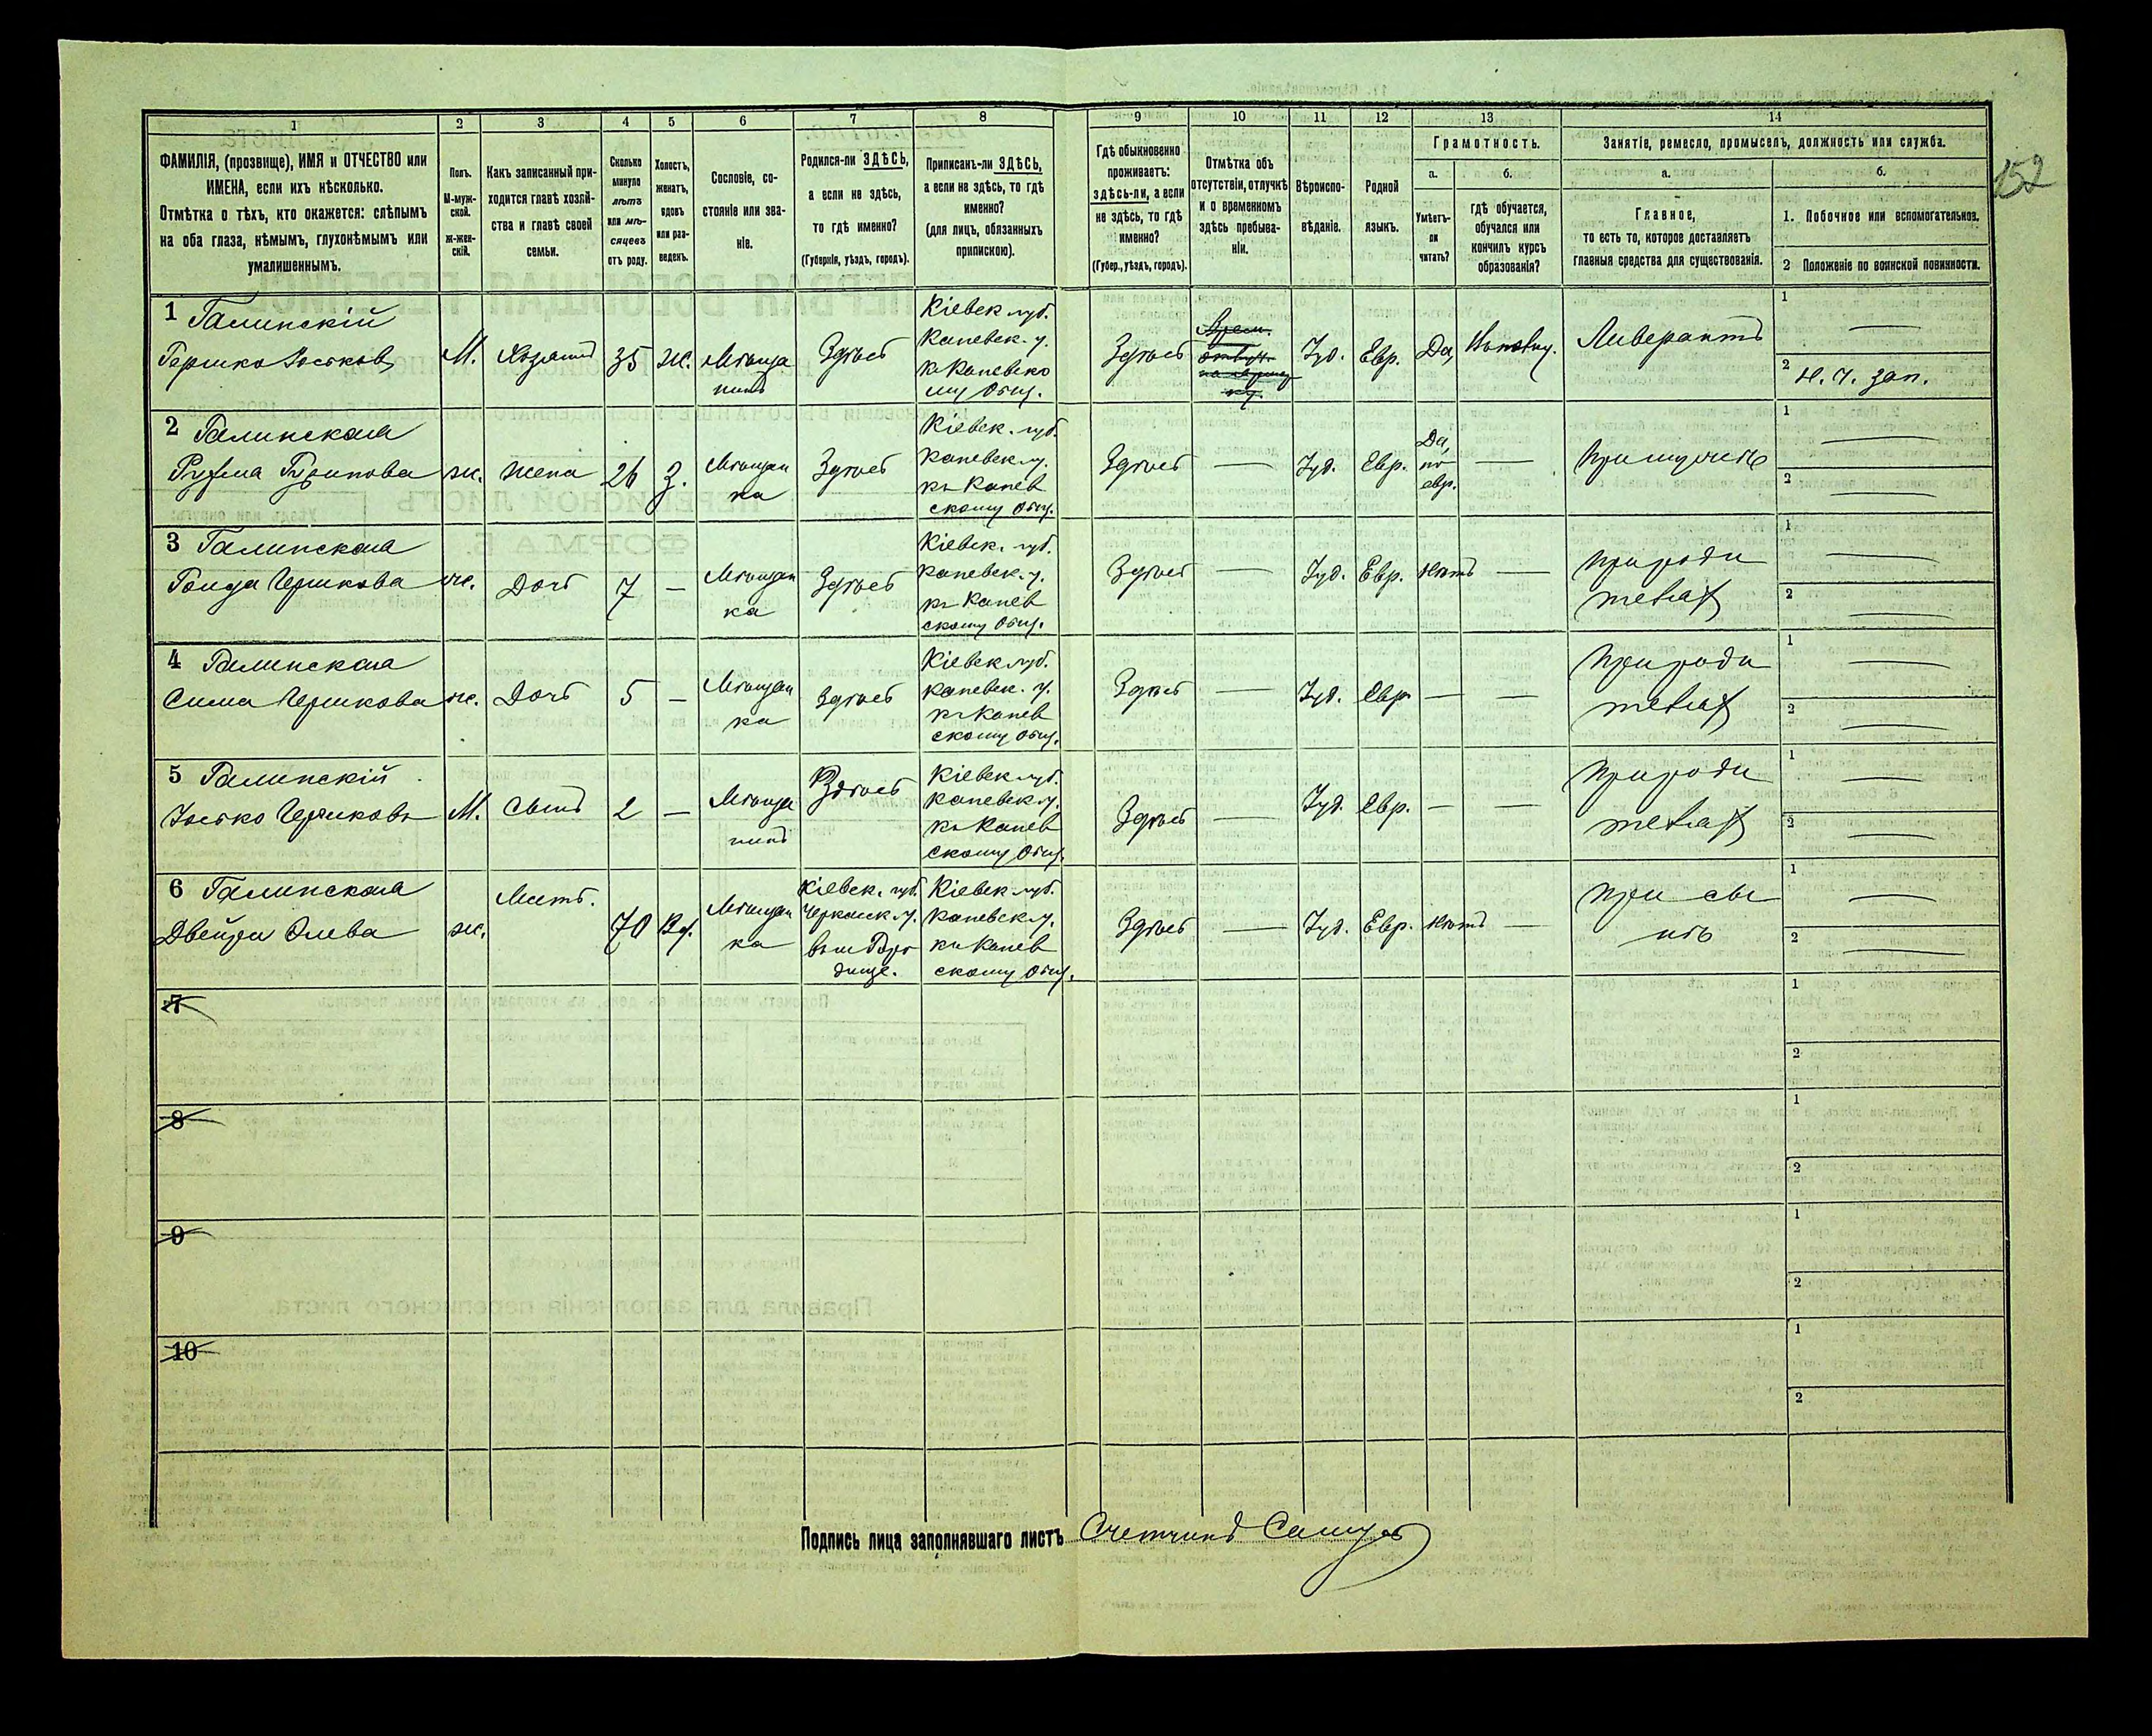 152
1 2 3 4 5 6 7 8 9 10 11 12 13 14
ФАМИЛІЯ, (прозвище), ИМЯ и ОТЧЕСТВО или
ИМЕНА, если ихъ нѣсколько.
Отмѣтка о тѣхъ, кто окажется: слѣпымъ
на оба глаза, нѣмымъ, глухонѣмымъ или
умалишеннымъ.
Полъ.
М-муж-
ской.
ж-жен-
скій.
Какъ записанный при-
ходится главѣ хозяй-
ства и главѣ своей
семьи.
Сколько
минуло
лѣтъ
или мѣ-
сяцевъ
отъ роду.
Холостъ,
женатъ,
вдовъ
или раз-
веденъ.
Сословіе, со-
стояніе или зва-
ніе.
Родился-ли ЗДѢСЬ,
а если не здѣсь,
то гдѣ именно?
(Губернія, уѣздъ, городъ).
Приписанъ-ли ЗДѢСЬ,
а если не здѣсь, то гдѣ
именно?
(для лицъ, обязанныхъ
припискою).
Гдѣ обыкновенно
проживаетъ:
здѣсь-ли, а если
не здѣсь, то гдѣ
именно?
(Губер., уѣздъ, городъ).
Отмѣтка объ
отсутствіи, отлучкѣ
и о временномъ
здѣсь пребыва-
ніи.
Вѣроиспо-
вѣданіе.
Родной
языкъ.
Грамотность.
а.
Умѣетъ-
ли
читать?
б.
гдѣ обучается,
обучался или
кончилъ курсъ
образованія?
Занятіе, ремесло, промыселъ, должность или служба.
а.
Главное,
то есть то, которое доставляетъ
главныя средства для существованія.
б.
1. Побочное или вспомогательное.
2 Положеніе по воинской повинности.
1 Галинскій
Гершко Іоськовъ
М. Хозяинъ 35 ж. Мѣща
нинъ
Здѣсь
Кіевск. губ.
Каневск. у.
къ Каневско
му Общ.
Здѣсь
Іуд. Евр. Да,
Ливерантъ
1
2 Н. ч. зап.
2 Галинская
жс. жена 26 З. Мѣщан
ка
Здѣсь
Кіевск. губ.
Каневск. у.
къ Канев
скому Общ.
Здѣсь — Іуд. Евр.
Да,
по-
евр.
—
При мужѣ
1 —
2 —
3 Галинская
Гершкова
ж. Дочь 7 — Мѣщан
ка
Здѣсь
Кіевск. губ.
Каневск. у.
къ Канев
скому Общ.
Здѣсь — Іуд. Евр. Нѣтъ —
При роди
теляхъ
1 —
2 —
4 Галинская
Сима Гершкова
ж. Дочь 5 — Мѣщан
ка
Здѣсь
Кіевск. губ.
Каневск. у.
къ Канев
скому Общ.
Здѣсь — Іуд. Евр. — —
При роди
теляхъ
1 —
2 —
5 Галинскій
Іосько Гершковъ
М. Сынъ 2 — Мѣща
нинъ
Здѣсь
Кіевск. губ.
Каневск. у.
къ Канев
скому Общ.
Здѣсь — Іуд. Евр. — —
При роди
теляхъ
1 —
2 —
6 Галинская
Двейра
ж. Мать. 70 Вд. Мѣщан
ка
Кіевск. губ.
Черкаск. у.
въ м. Горо
дище.
Кіевск. губ.
Каневск. у.
къ Канев
скому Общ.
Здѣсь — Іуд. Евр. Нѣтъ —
При сы
нѣ
1 —
2 —
7
1
2
8
1
2
9
1
2
10
1
2
Подпись лица заполнявшаго листъ Счетчикъ